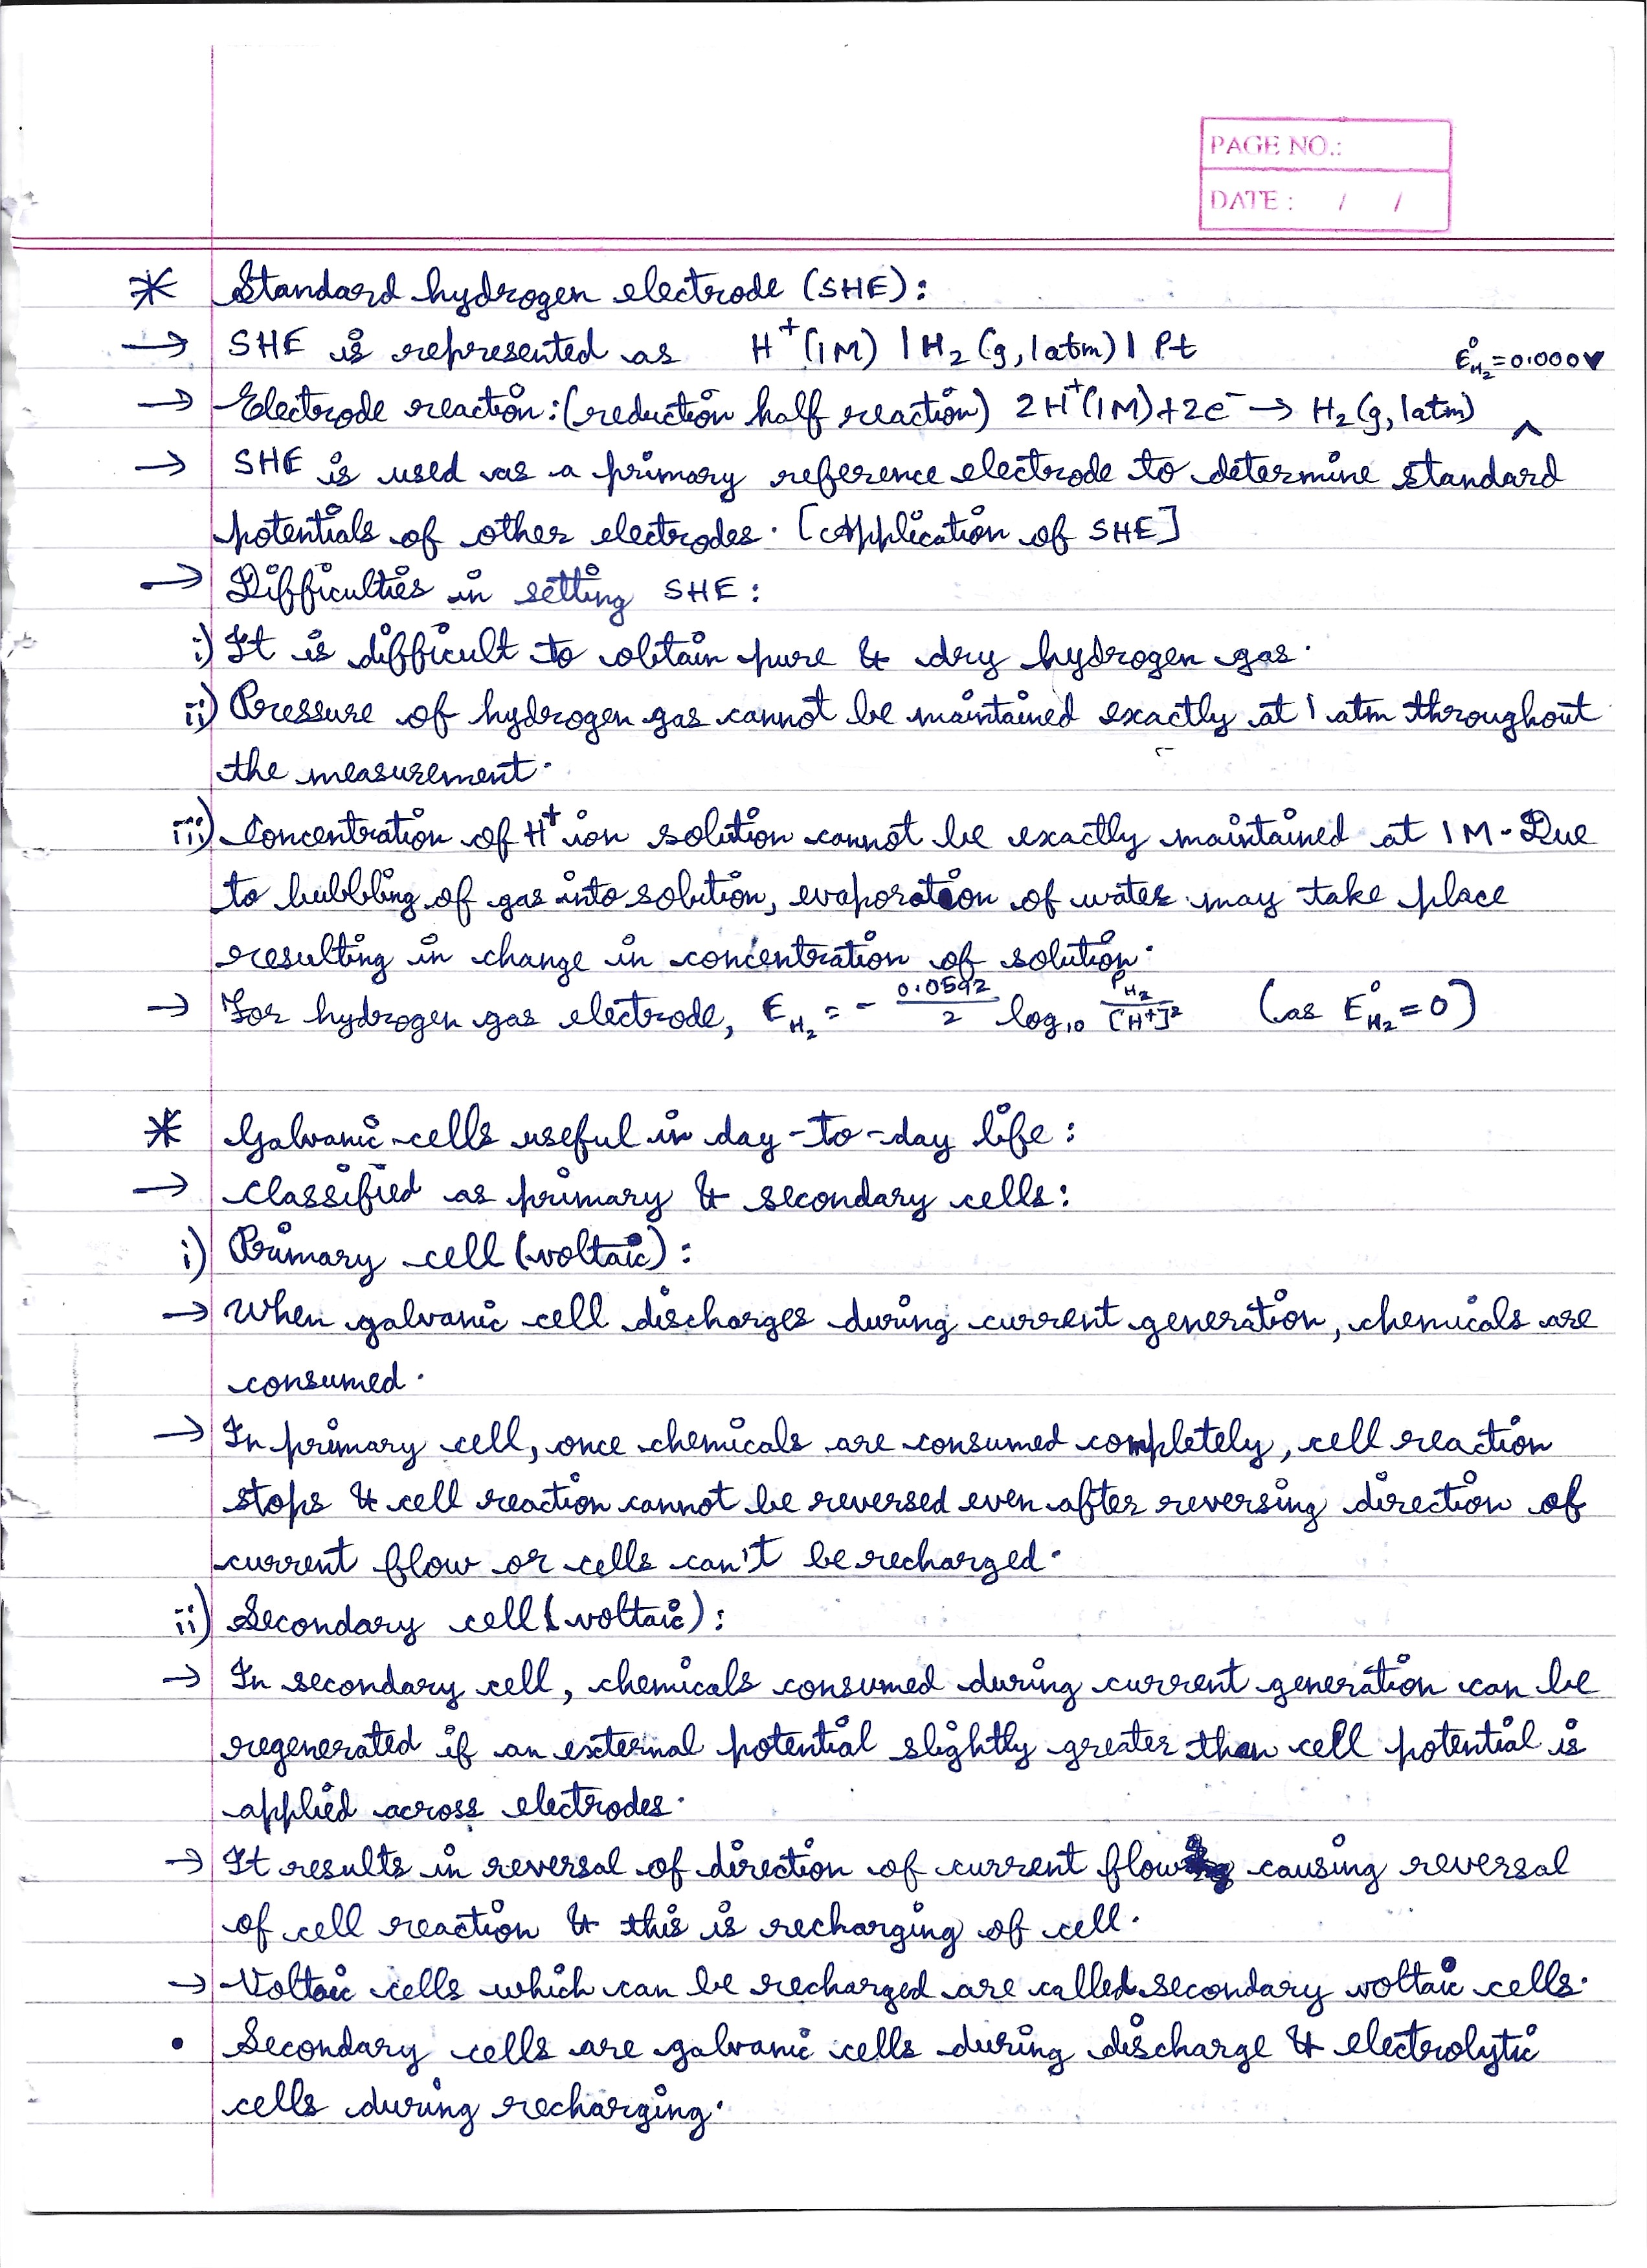 PAGE NO.:
DATE : / /
* Standard hydrogen electrode (SHE):
→ SHE is represented as H⁺(1M) | H₂ (g, 1atm) | Pt
E°H₂ = 0.000V
→ Electrode reaction: (reduction half reaction) 2H⁺(1M) + 2e⁻ → H₂ (g, 1atm) ^
→ SHE is used as a primary reference electrode to determine standard
potentials of other electrodes. [Application of SHE]
→ Difficulties in setting SHE:
i) It is difficult to obtain pure & dry hydrogen gas.
ii) Pressure of hydrogen gas cannot be maintained exactly at 1 atm throughout
the measurement.
iii) Concentration of H⁺ ion solution cannot be exactly maintained at 1 M. Due
to bubbling of gas into solution, evaporation of water may take place
resulting in change in concentration of solution.
→ For hydrogen gas electrode, E_H₂ = - 0.0592/2 log₁₀ P_H₂/[H⁺]² (as E°H₂ = 0)
* Galvanic cells useful in day-to-day life:
→ Classified as primary & secondary cells:
i) Primary cell (voltaic):
→ When galvanic cell discharges during current generation, chemicals are
consumed.
→ In primary cell, once chemicals are consumed completely, cell reaction
stops & cell reaction cannot be reversed even after reversing direction of
current flow or cells can't be recharged.
ii) Secondary cell (voltaic):
→ In secondary cell, chemicals consumed during current generation can be
regenerated if an external potential slightly greater than cell potential is
applied across electrodes.
→ It results in reversal of direction of current flow causing reversal
of cell reaction & this is recharging of cell.
→ Voltaic cells which can be recharged are called secondary voltaic cells.
• Secondary cells are galvanic cells during discharge & electrolytic
cells during recharging.